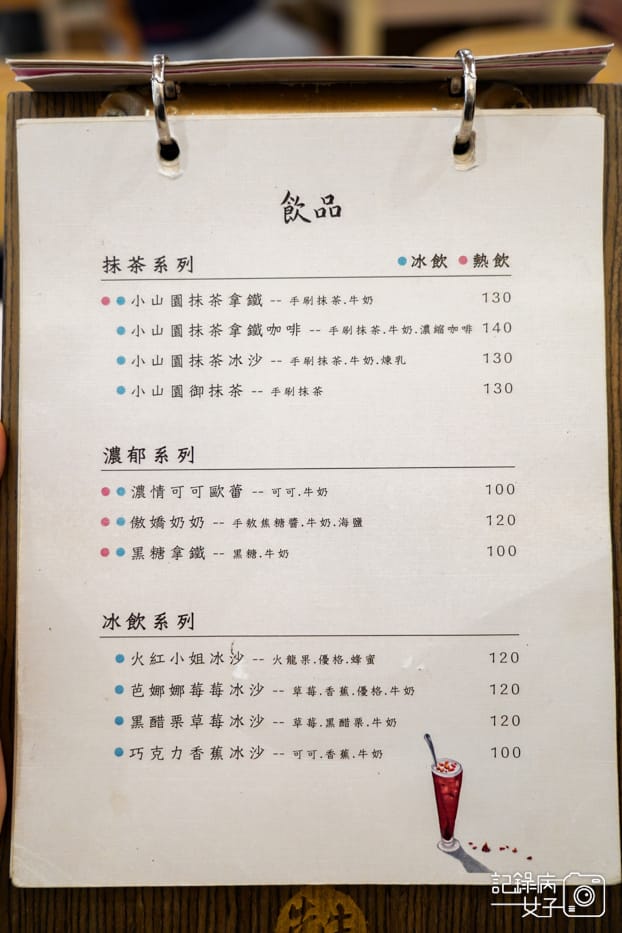 飲品
抹茶系列 ●冰飲 ●熱飲
小山園抹茶拿鐵 -- 手刷抹茶.牛奶 130
小山園抹茶拿鐵咖啡 -- 手刷抹茶.牛奶.濃縮咖啡 140
小山園抹茶冰沙 -- 手刷抹茶.牛奶.煉乳 130
小山園御抹茶 -- 手刷抹茶 130
濃郁系列
濃情可可歐蕾 -- 可可.牛奶 100
傲嬌奶奶 -- 手敖焦糖醬.牛奶.海鹽 120
黑糖拿鐵 -- 黑糖.牛奶 100
冰飲系列
火紅小姐冰沙 -- 火龍果.優格.蜂蜜 120
芭娜娜莓莓冰沙 -- 草莓.香蕉.優格.牛奶 120
黑醋栗草莓冰沙 -- 草莓.黑醋栗.牛奶 120
巧克力香蕉冰沙 -- 可可.香蕉.牛奶 100
記錄病
女子